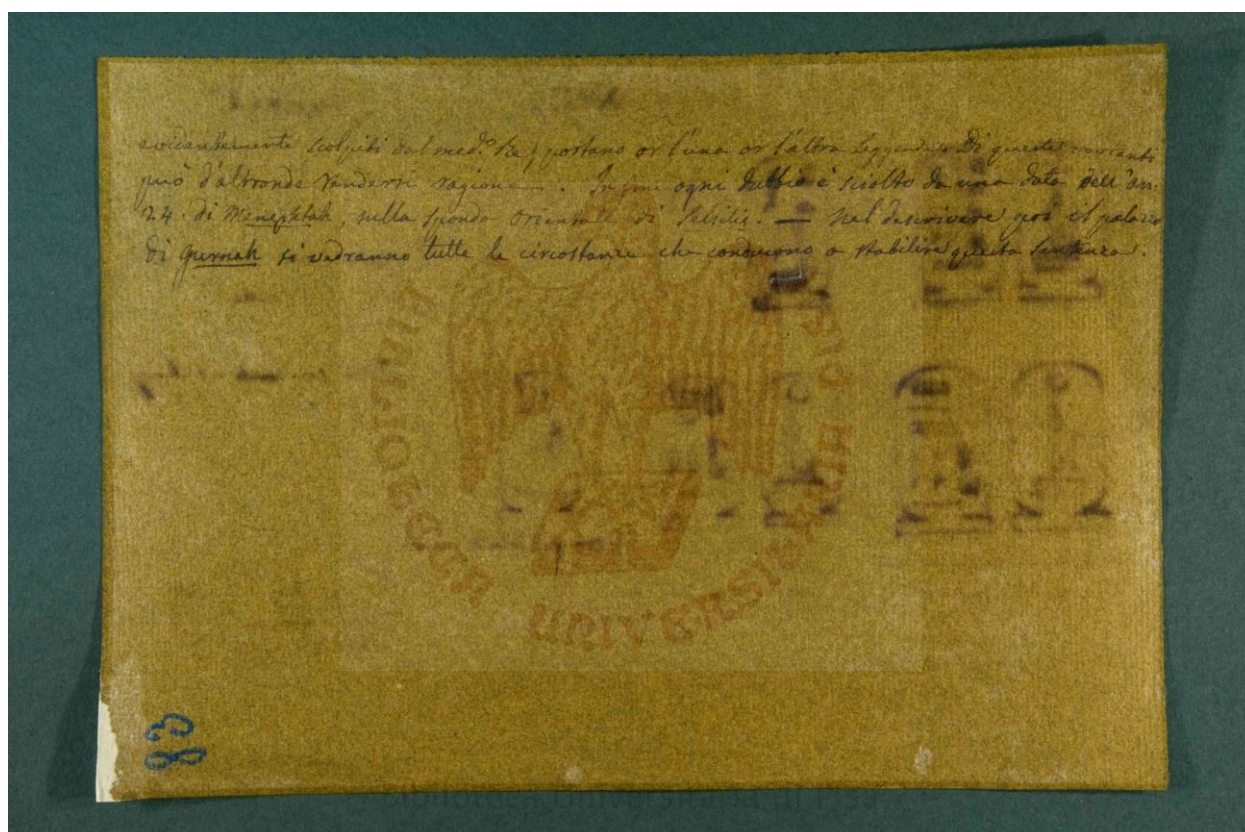 evidentemente scolpiti dal med.º Re, portano or l'una or l'altra Leggenda. Di queste varianti
può d'altronde rendersi ragione. Infine ogni dubbio è sciolto da una data dell'an.
24. di Meneptah, nella sponda orientale di Silsilis. — Nel descrivere poi il palazzo
di Gurnah si vedranno tutte le circostanze che conducono a stabilire questa sentenza.
UNIVERSI
83
Biblioteca Universitaria di Pisa